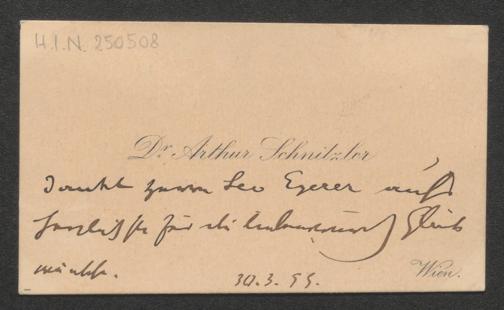 H.I.N. 250508
Dr. Arthur Schnitzler
dankt Herrn Leo Egerer aufs
herzlichste für die liebenswürd. Glück
wünsche.
30.3.99.
Wien.